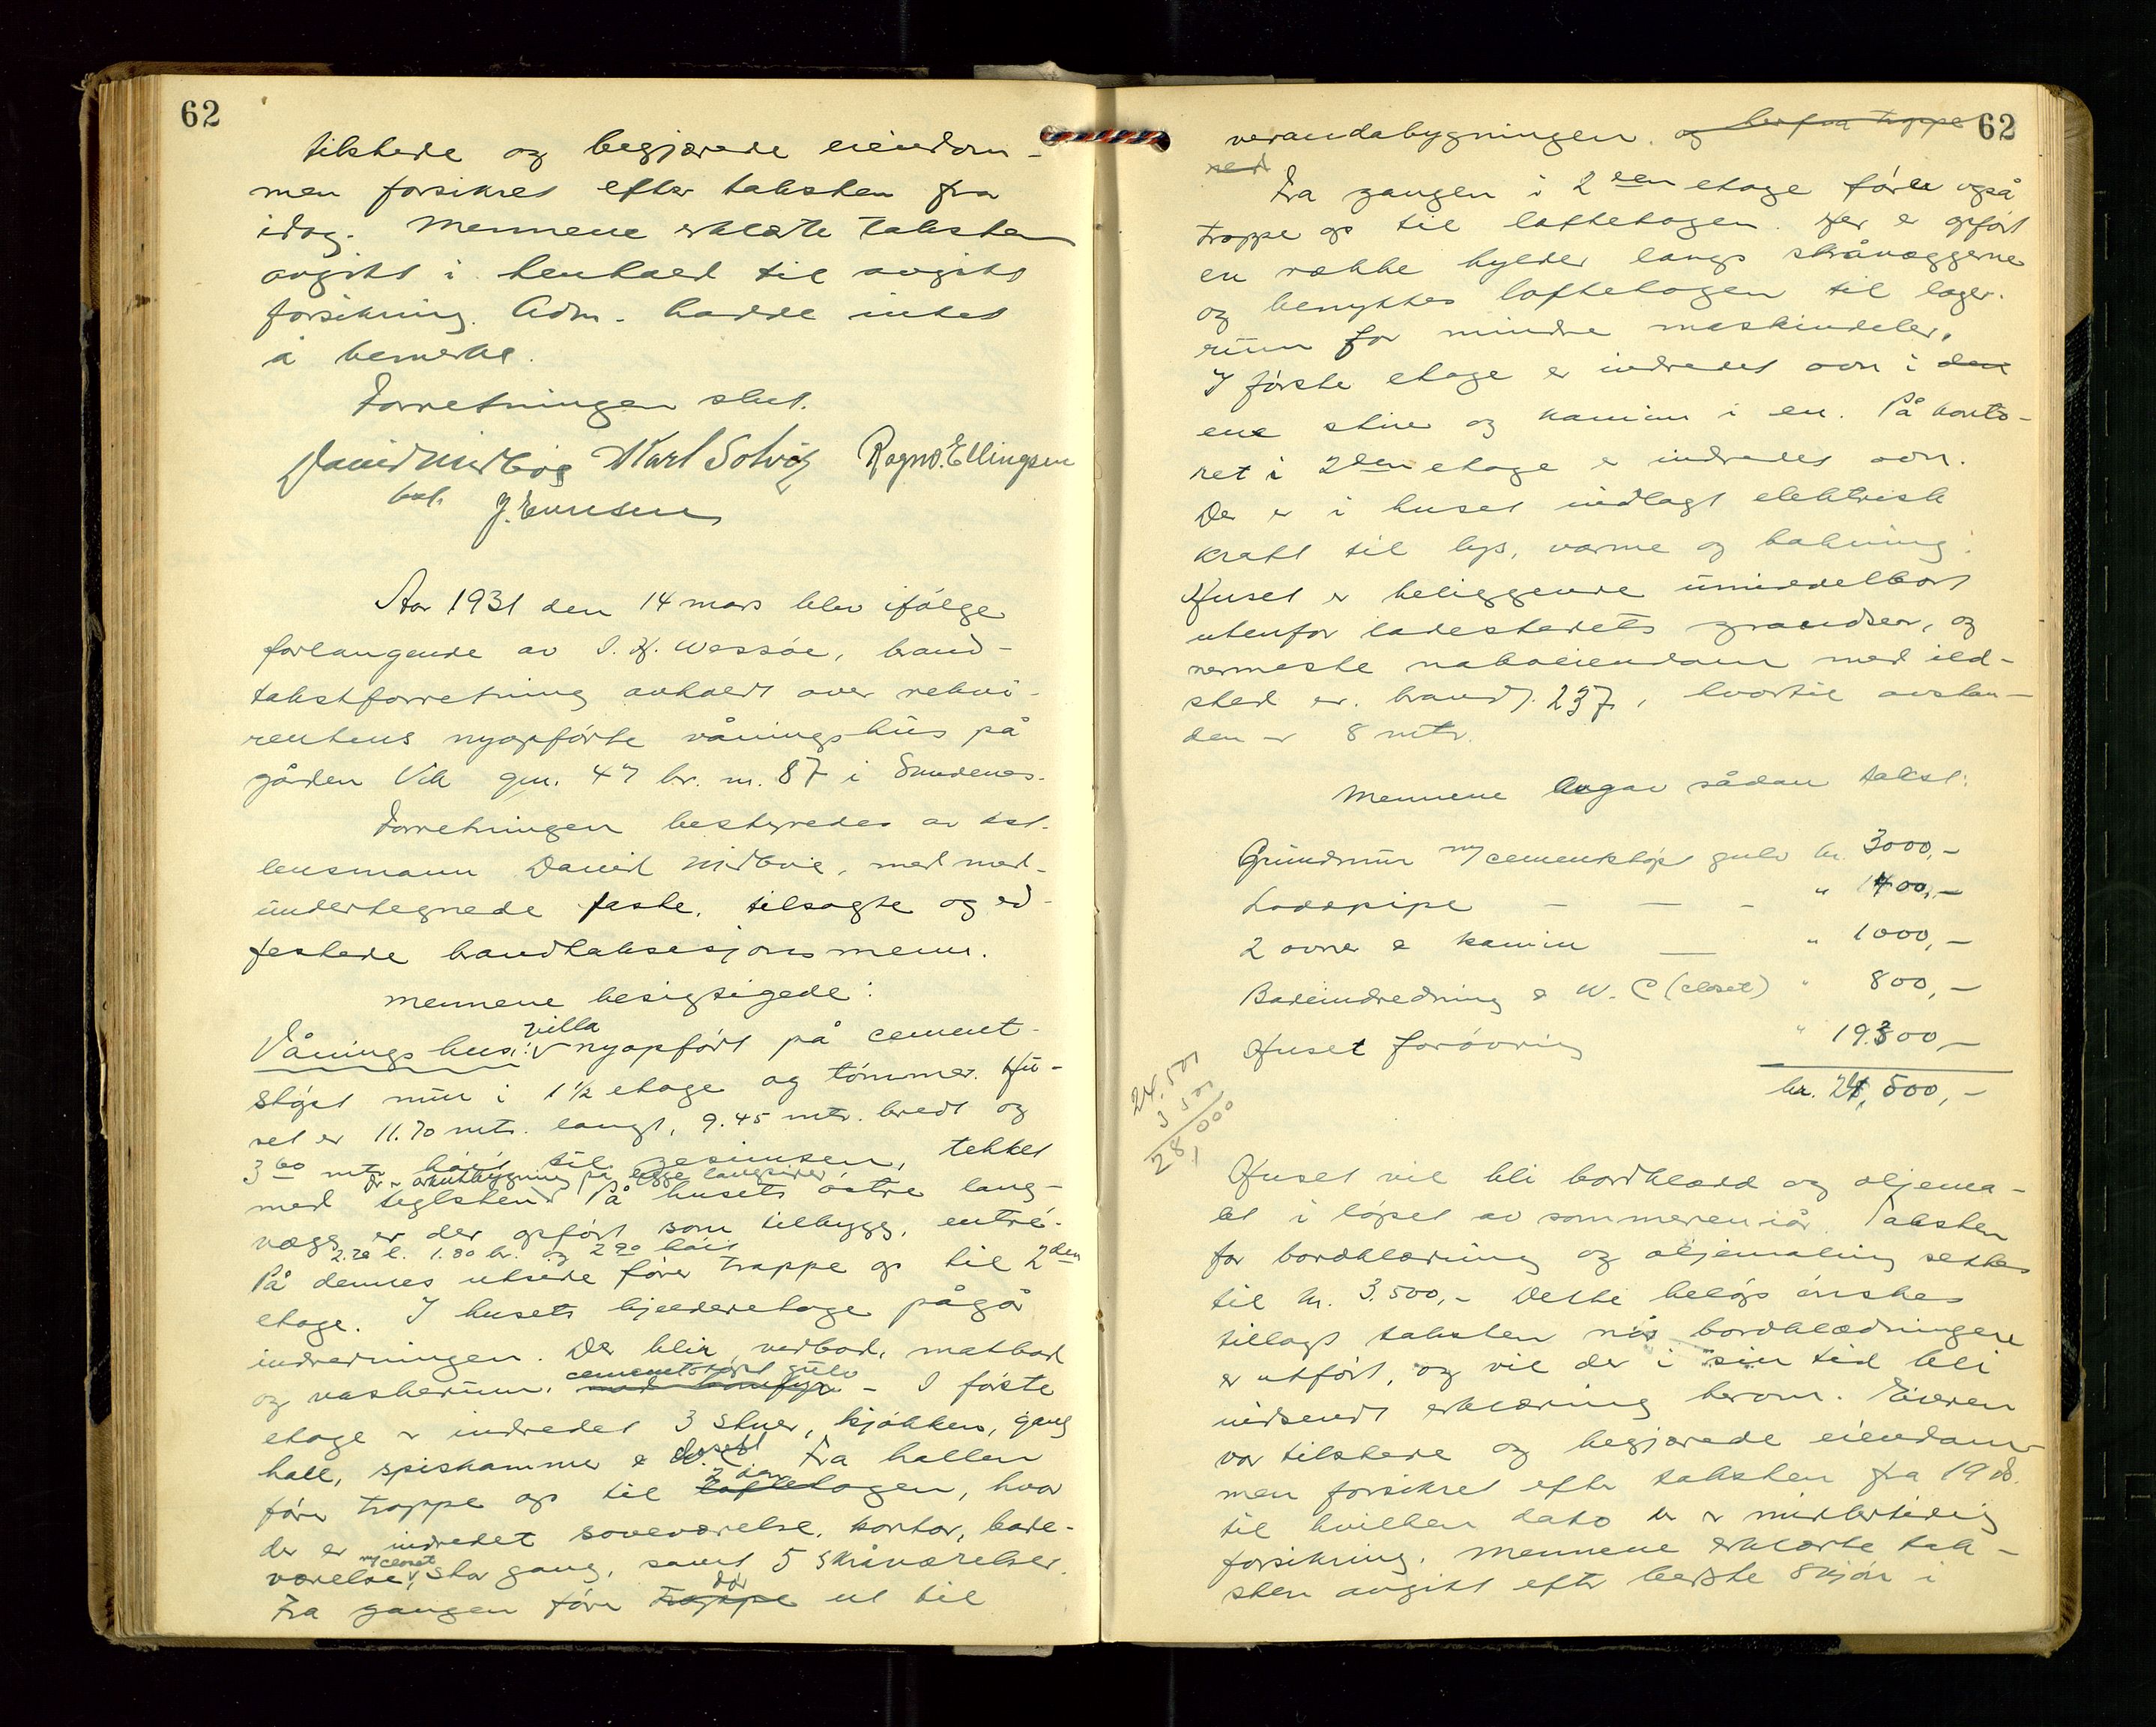 62
tilstede og begjærede eiendom-
men forsikret efter taksten fra
idag. Mennene erklærte taksten
avgitt i henhold til avgitt
forsikring. Adm. hadde intet
å bemerke.
Forretningen slut.
David Midbøe Karl Solvig Ragnv. Ellingsen
bst. J. Evensen
Aar 1931 den 14 mars blev ifølge
forlangende av I. H. Wessøe, brand-
takstforretning avholdt over rekvi-
rentens nyopførte våningshus på
gården Vik gnr. 47 br. nr. 87 i Sundenes.
Forretningen bestyredes av bst.
lensmann David Midbøe, med med-
undertegnede faste, tilsagte og ed-
festede brandtaksasjonsmenn.
Mennene besigtigede:
villa
Våningshus: nyopført på cement-
støpt mur i 1½ etage og tømmer. Hu-
set er 11.70 mtr. langt, 9.45 mtr. bredt og
3.60 mtr. høit til gesimsen, tekket
Der er arkutbygning på begge langsider
med teglsten. På husets østre lang-
vegg er der opført som tilbygg, entré.
2.20 l. 1.80 br. og 2.90 høit
På dennes utside fører trappe op til 2den
etage. I husets kjelderetage pågår
indredningen. Der blir vedbod, matbod
cementstøpt gulv
og vaskerum. med komfyr - I første
etage er indredet 3 stuer, kjøkken, gang
hall, spiskammer & closet Fra hallen
2 den
fører trappe op til loftetagen, hvor
der er indredet soveværelse, kontor, bade-
m/closet
værelse, stor gang, samt 5 skråværelser.
dør
Fra gangen fører trappe ut til
62
verandabygningen. og herfra trappe
ned
Fra gangen i 2den etage fører også
trappe op til loftetagen. Her er opført
en rekke hylder langs skråveggerne
og benyttes loftetagen til lager-
rum for mindre maskindeler.
I første etage er indredet ovn i den
ene stue og kamin i en. På konto-
ret i 2den etage er indredet ovn.
Der er i huset indlagt elektrisk
kraft til lys, varme og kokning.
Huset er beliggende umiddelbart
utenfor ladestedets grændser, og
nermeste naboeiendom med ild-
sted er brand). 237, hvortil avstan-
den er 8 mtr.
Mennene avgav sådan takst:
Grundmur m/ cementstøpt gulv kr. 3000,-
Loddpipe — — — " 1400,-
2 ovner & kamin — " 1000,-
Badeindredning & W. C (closet) " 800,-
Huset forøvrig " 19.300,-
kr. 24,500,-
24.500
3 500
28,000
Huset vil bli bordklædd og oljema-
let i løpet av sommeren iår. Taksten
for bordklædning og oljemaling settes
til kr. 3.500,- Dette beløp ønskes
tillagt taksten når bordklædningen
er utført, og vil der i sin tid bli
indsendt erklæring herom. Eieren
var tilstede og begjærede eiendom-
men forsikret efter taksten fra 19 ds.
til hvilken dato der er midlertidig
forsikring. Mennene erklærte tak-
sten avgitt efter beste skjøn i